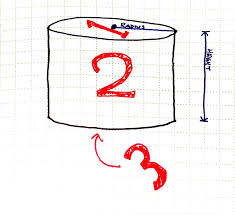 RADIUS
1
2
HEIGHT
3